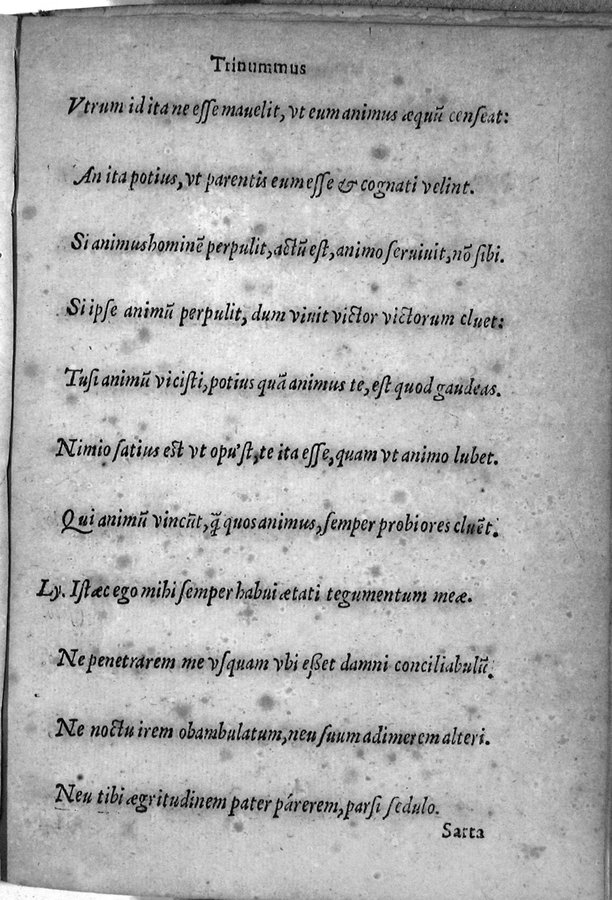 Trinummus
Vtrum id ita ne eſſe mauelit, vt eum animus æquũ cenſeat:
An ita potius, vt parentis eum eſſe & cognati velint.
Si animus hominẽ perpulit, actũ eſt, animo ſeruiuit, nõ ſibi.
Si ipſe animũ perpulit, dum viuit victor victorum cluet:
Tu ſi animũ viciſti, potius quã animus te, eſt quod gaudeas.
Nimio ſatius eſt vt opu'ſt, te ita eſſe, quam vt animo lubet.
Qui animũ vincũt, q̃ quos animus, ſemper probiores cluẽt.
Ly. Iſtæc ego mihi ſemper habui ætati tegumentum meæ.
Ne penetrarem me vſquam vbi eßet damni conciliabulũ.
Ne noctu irem obambulatum, neu ſuum adimerem alteri.
Neu tibi ægritudinem pater párerem, parſi ſedulo.
Sarta